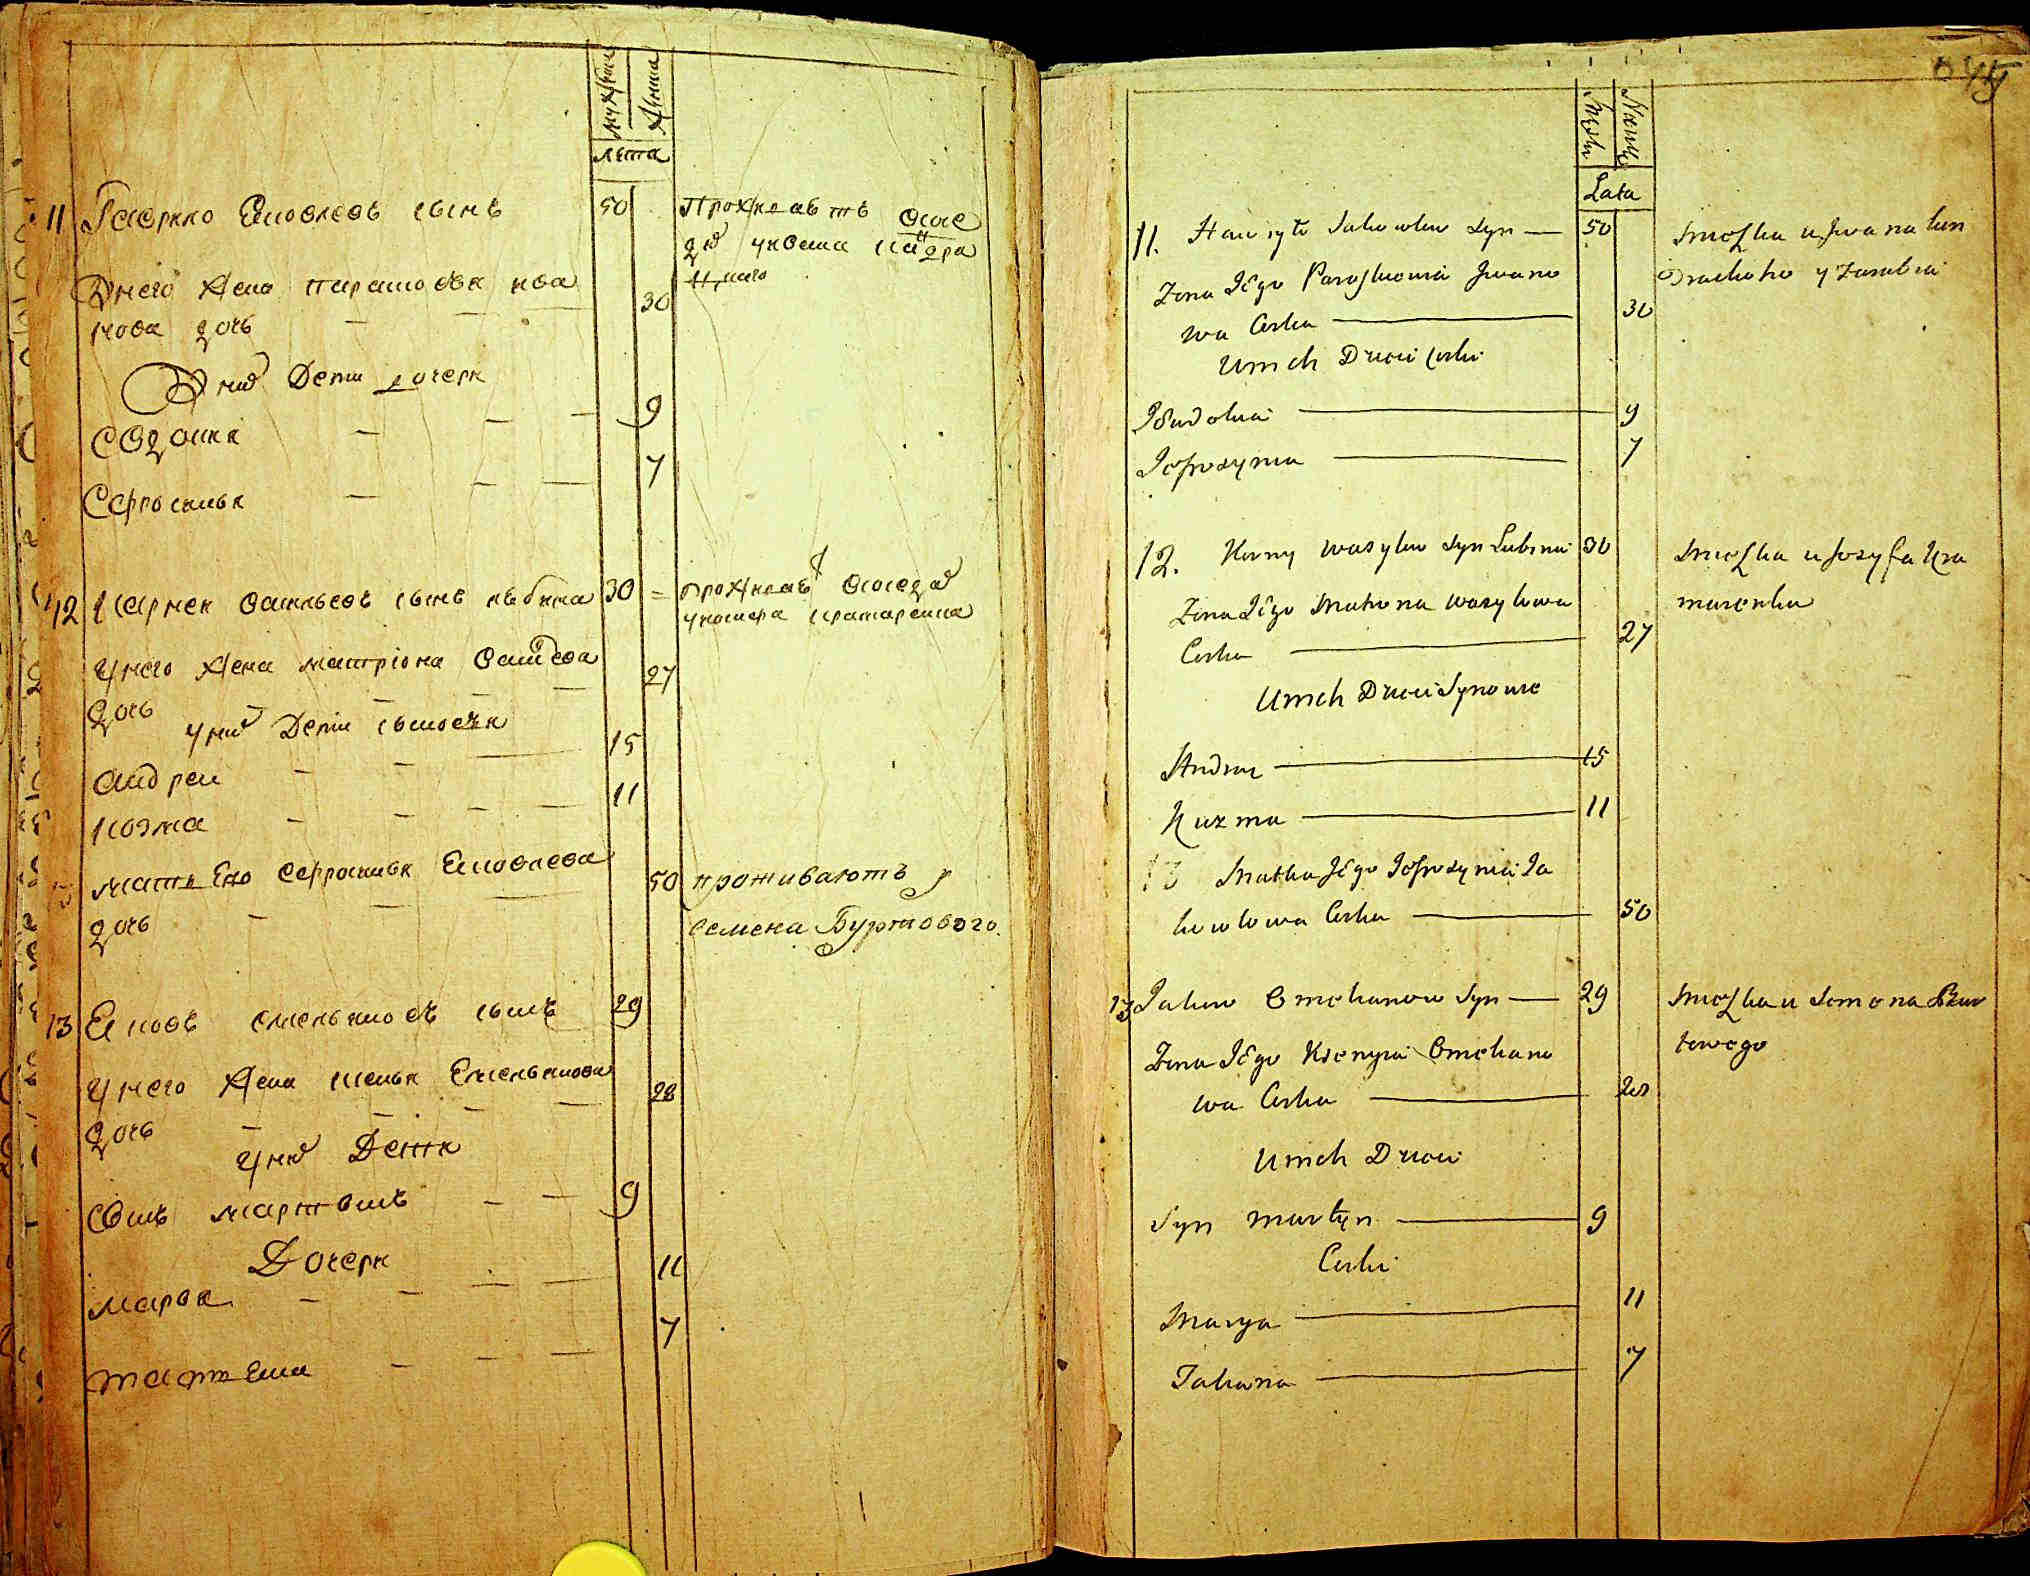 мужеска
женска
лета
11 Гаврило Яковлевъ сынъ 50
Проживаетъ
у него жена парасковья ива 30
нова дочь
у нихъ Дети дочери
Евдокия 9
Ефросинья 7
12 Карней васильевъ сынъ 30
проживаетъ
у него жена матриона 27
дочь
у нихъ Дети сыновья
андреи 15
козма 11
мать Его Ефросинья Яковлева 50
дочь
проживаютъ у
семена Буртового.
13 Яковъ емельяновъ сынъ 29
у него жена Емельянова 28
дочь
у нихъ Дети
Сынъ мартынъ 9
Дочери
марья 11
татьяна 7
Męska
Lata
11. Hawryło Jakowlew Syn 50
Mieszka u Iwana
Zona Jego Paraskewia Iwano
wa Corka 30
U nich Dzieci Corki
Jewdokia 9
Jefrosynia 7
12. Korny Wasylew Syn 30
Mieszka u Jozyfa Kra
marenka
Zona Jego Matrona Wasylowa
Corka 27
U nich Dzieci Synowie
Andrey 15
Kuzma 11
13 Matka Jego Jefrosynia Ja
kowlowa Corka 50
13 Jakow Omelianow Syn 29
Mieszka u Semena Bur
towego
Zona Jego Ksenyia Omeliano
wa Corka 28
U nich Dzieci
Syn Martyn 9
Corki
Marya 11
Tatiana 7